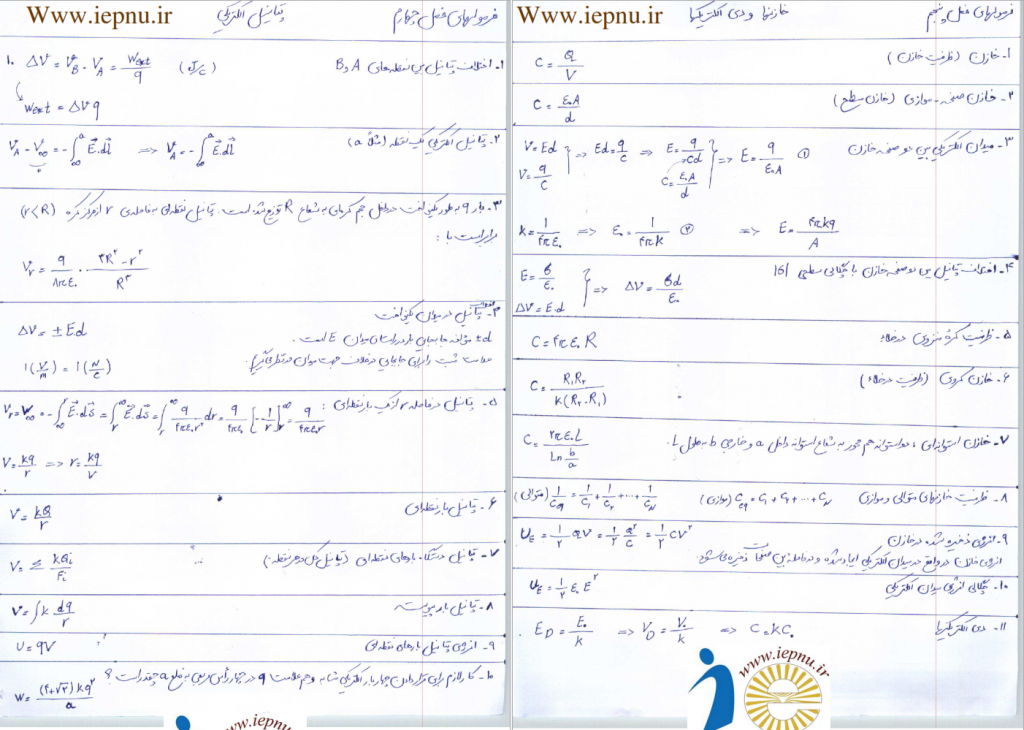 Www.iepnu.ir
فرمولهای فصل چهارم
پتانسیل الکتریکی
۱- اختلاف پتانسیل بین نقطه‌های A و B
(J/C)
۱. ΔV = V_B - V_A = W_ext / q
W_ext = ΔV q
۲- پتانسیل الکتریکی یک نقطه (مثلاً a)
V_A - V_∞ = -∫_∞^a E⃗.dl⃗ => V_A = -∫_∞^a E⃗.dl⃗
۳- بار q به طور یکنواخت در داخل حجم کره‌ای به شعاع R توزیع شده است. پتانسیل نقطه‌ای به فاصله‌ی r از مرکز کره (r<R)
برابر است با:
V_r = q / ۸πε₀ . (۳R² - r²) / R³
۴- اختلاف پتانسیل در میدان یکنواخت
ΔV = ±Ed
±d مؤلفه جابجایی بار در راستای میدان E است.
علامت مثبت را برای جابجایی در خلاف جهت میدان در نظر می‌گیریم.
۱(V/m) = ۱(N/C)
۵- پتانسیل در فاصله r از یک بار نقطه‌ای:
V_r = V_∞ = -∫_∞^r E⃗.ds⃗ = ∫_r^∞ E⃗.ds⃗ = ∫_r^∞ q / ۴πε₀r² dr = q / ۴πε₀ [-۱/r]_r^∞ = q / ۴πε₀r
V = kq/r => r = kq/V
۶- پتانسیل بار نقطه‌ای
V = kQ/r
۷- پتانسیل دستگاه بارهای نقطه‌ای (پتانسیل کل در هر نقطه)
V = Σ kQᵢ/rᵢ
۸- پتانسیل بار پیوسته
V = ∫ k dq/r
۹- انرژی پتانسیل بارهای نقطه‌ای
U = qV
۱۰- کار لازم برای قرار دادن چهار بار الکتریکی مشابه و هم علامت q در چهار رأس مربعی به ضلع a چقدر است؟
W = (۴+√۲) k q² / a
www.iepnu.ir
Www.iepnu.ir
فرمولهای فصل پنجم
خازنها و دی الکتریکها
۱- خازن (ظرفیت خازن)
C = Q/V
۲- خازن صفحه - موازی (خازن مسطح)
C = ε₀A/d
۳- میدان الکتریکی بین دو صفحه خازن
V = Ed
V = q/C
=> Ed = q/C => E = q/Cd
C = ε₀A/d
=> E = q/ε₀A ①
k = ۱/۴πε₀ => ε₀ = ۱/۴πk ② => E = ۴πkq/A
۴- اختلاف پتانسیل بین دو صفحه خازن با چگالی سطحی |σ|
E = σ/ε₀
ΔV = Ed
=> ΔV = σd/ε₀
۵- ظرفیت کره منزوی در خلاء
C = ۴πε₀R
۶- خازن کروی (ظرفیت در خلاء)
C = R₁R₂ / k(R₂-R₁)
۷- خازن استوانه‌ای: دو استوانه هم محور به شعاع استوانه داخل a و خارجی b به طول L.
C = ۲πε₀L / Ln b/a
۸- ظرفیت خازنهای متوالی و موازی
(موازی) C_eq = C₁ + C₂ + ... + C_N
(متوالی) ۱/C_eq = ۱/C₁ + ۱/C₂ + ... + ۱/C_N
۹- انرژی ذخیره شده در خازن
U_E = ۱/۲ QV = ۱/۲ Q²/C = ۱/۲ CV²
انرژی خازن در واقع در میدان الکتریکی ایجاد شده و در فاصله بین صفحات ذخیره می‌شود.
۱۰- چگالی انرژی میدان الکتریکی
u_E = ۱/۲ ε₀ E²
۱۱- دی الکتریکها
E_D = E₀/k => V_D = V₀/k => C = kC₀
www.iepnu.ir